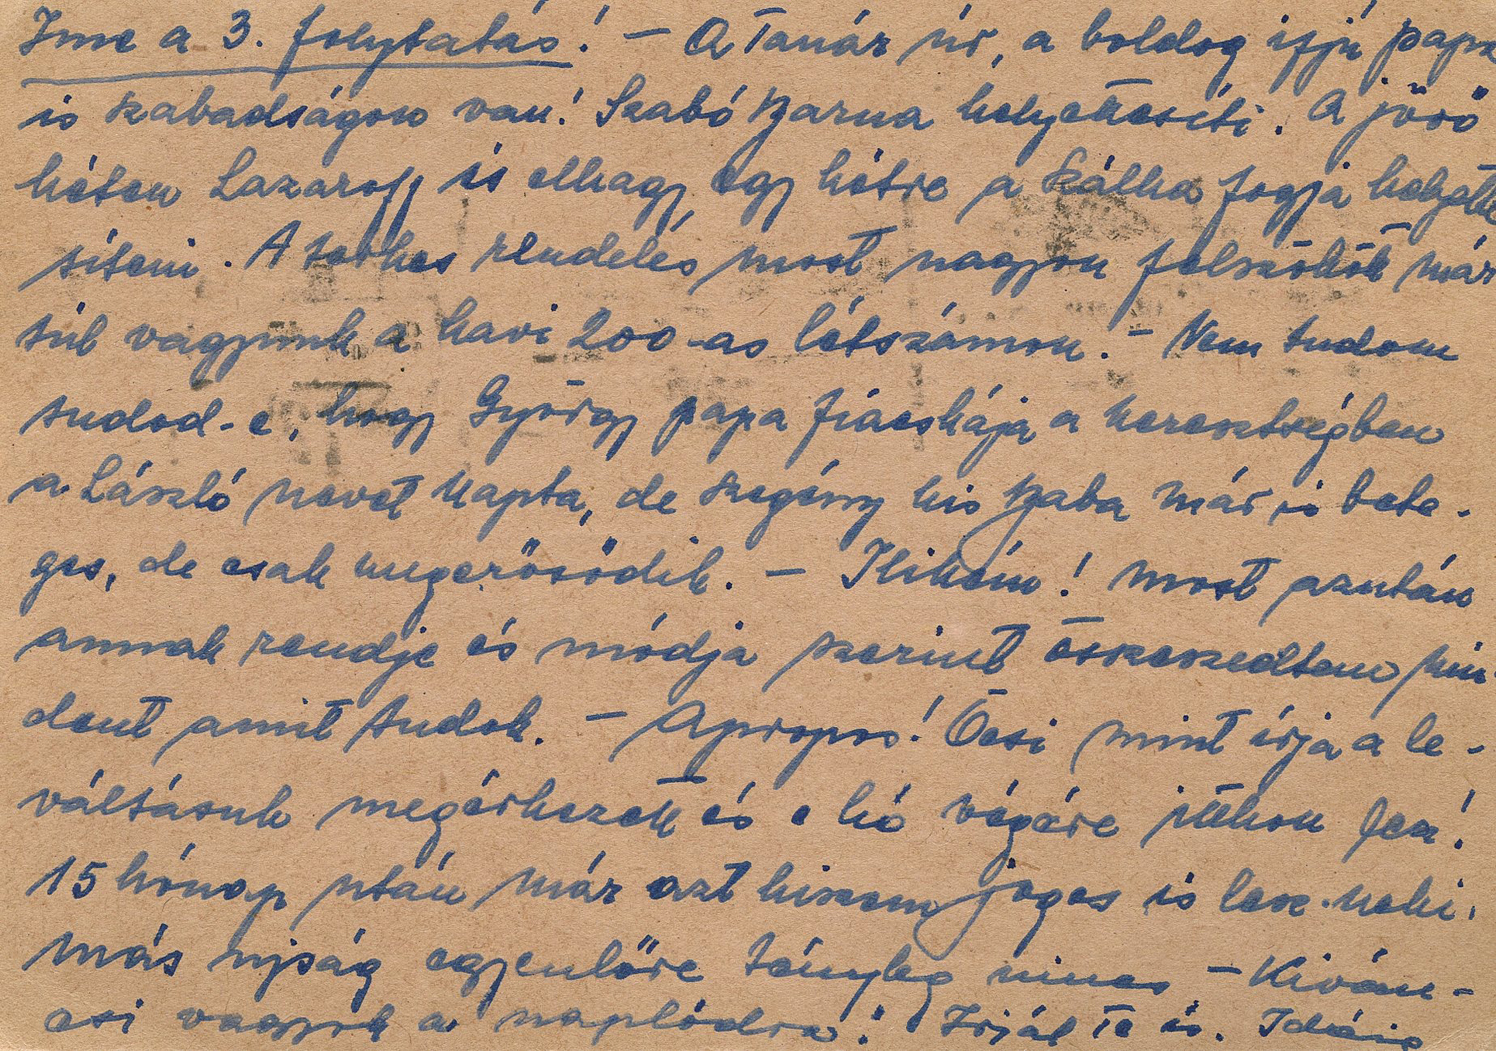 Ime a 3. folytatás! – A Tanár úr, a boldog ifjú papa
is szabadságon van! Szabó helyettesíti. A jövő
héten Lazaroff is elhagy egy hétre a Kálha fogja helyette-
síteni. A terhes rendelés most nagyon felszökött már
túl vagyunk a havi 200-as létszámon. – Nem tudom
tudod-e, hogy György papa fiacskája a keresztségben
a László nevet kapta, de szegény kis már is bete-
ges, de csak megerősödik. – Ilikém! most azután
annak rendje és módja szerint összeszedtem min-
dent amit tudok. – Apropos! Öcsi mint írja a le-
váltásuk megérkezett és e hó végére itthon lesz!
15 hónap után már azt hiszem jogos is lesz neki.
más ujság egyenlőre tényleg nincs – Kiván-
csi vagyok a naplódra! Irjál Te is. Idáig